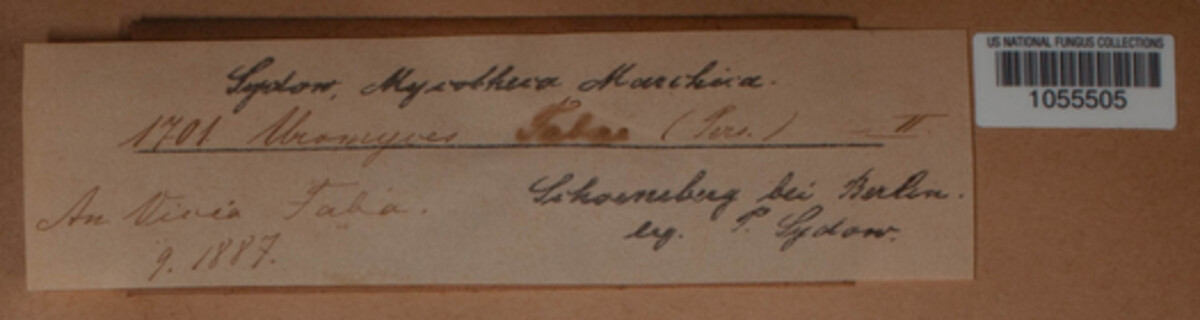 Sydow, Mycotheca Marchica.
1701 Uromyces Fabae (Pers.) - II
An Vicia Faba.
9. 1887.
Schoeneberg bei Berlin.
leg. P. Sydow.
US NATIONAL FUNGUS COLLECTIONS
1055505